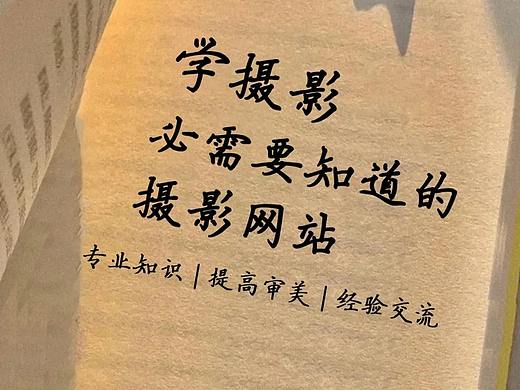 学摄影
必需要知道的
摄影网站
专业知识 | 提高审美 | 经验交流